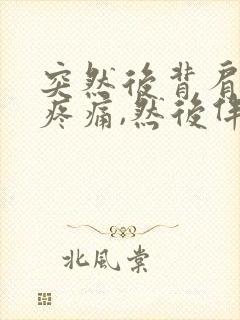 突然後背肩
疼痛,然後伴
北風棠